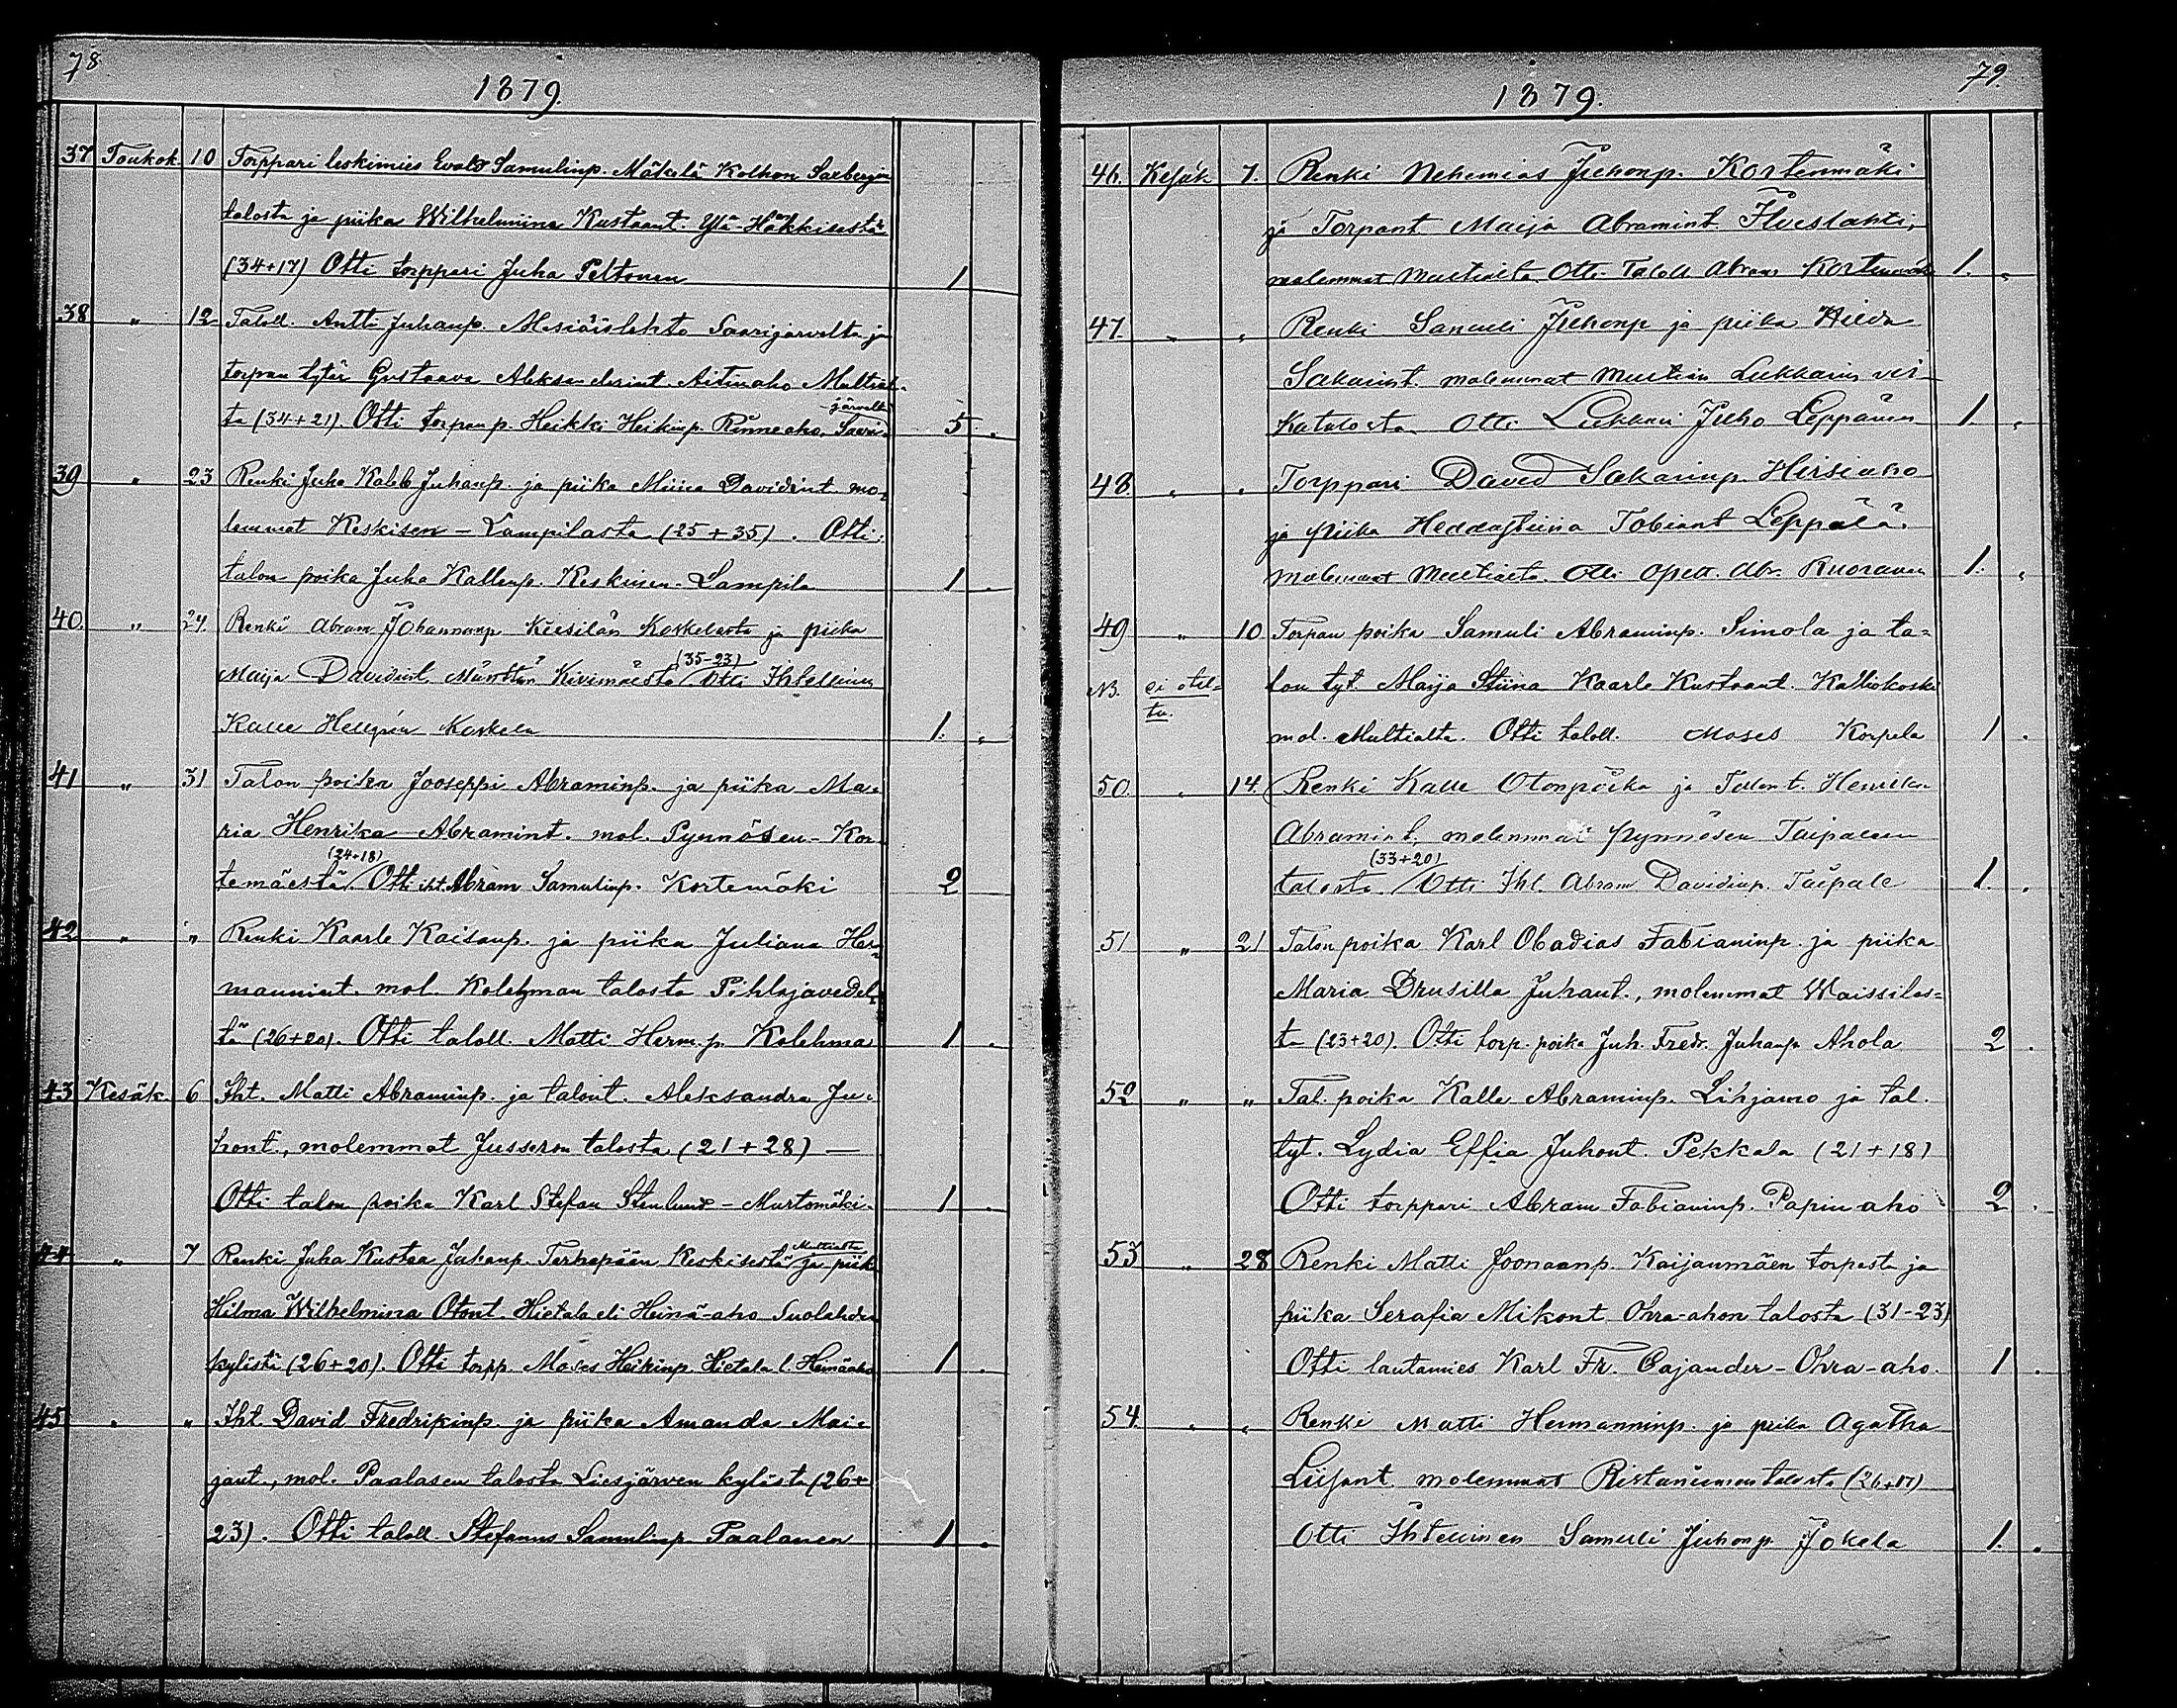 78
1879.
37 Toukok. 10 Torppari leskimies Evald Samulinp. Mäkelä Kolhon Saxbergin
talosta ja piika Wilhelmiina Kustaant. Ylä-Häkkisestä
(34+17) Otti torppari Juha Peltonen 1
38 " 12 Taloll. Antti Juhanp. Mesiäislehto Saarijärveltä ja
torpan tytär Gustaava Aleksanderint. Aitinaho Multial-
järveltä
ta (34+21). Otti torpan p. Heikki Heikinp. Rinneaho, Saari- 5 .
39 " 23 Renki Juha Kaleb Juhanp. ja piika Miina Davidint. mo-
lemmat Keskisen-Lampilasta (25+35). Otti
talon poika Juha Kallenp. Keskinen-Lampila 1 .
40. " 24. Renki Abram Johannanp. Keesilän Koskelasta ja piika
(35-23)
Maija Davidint. Kivimäestä Otti Ihtellinen
Kalle Hellgrén Koskela 1. "
41 " 31 Talon poika Jooseppi Abraminp. ja piika Ma-
ria Henrika Abramint. mol. Pynnösen-Kor-
(24+18)
temäestä. Otti iht. Abram Samulinp. Kortemäki 2
42 " " Renki Kaarle Kaisanp. ja piika Juliana Her-
mannint. mol. Kolehman talosta Pihlajavedel-
tä (26+20). Otti taloll. Matti Herm. p. Kolehma 1 .
43 Kesäk. 6 Iht. Matti Abraminp. ja talont. Aleksandra Ju-
hont., molemmat Jusseron talosta (21+28) —
Otti talon poika Karl Stefan Stenlund - Murtomäki. 1 .
Multialta
44 " 7 Renki Juha Kustaa Juhanp. Tarhapään Keskisestä ja piika
Hilma Wilhelmina Otont. Hietala eli Heinä-aho Suolahden
kylästä (26+20). Otti torpp. Moses Heikinp. Hietala l. Heinäaho 1 .
45 " " Iht. David Fredrikinp. ja piika Amanda Mai-
jant., mol. Paalasen talosta Liesjärven kylästä (26+
23). Otti taloll. Stefanus Samulinp. Paalanen 1 .
79.
1879.
46. Kesäk 7. Renki Nehemias Juhonp. Kortenmäki
ja Torpant Maija Abramint.
molemmat Multialta. Otti Taloll Abram Kortenmäki 1. "
47. " " Renki Samuli Juhonp ja piika Hilda
Sakarint. molemmat Multian Lukkarin vir-
katalosta Otti Lukkari Juho Leppänen 1. "
48. " " Torppari David Sakarinp. Hirsiaho
ja piika Heddastiina Tobiant Leppälä.
molemmat Multialta. Otti Opett. Abr. Ruoranen 1. "
49 " 10 Torpan poika Samuli Abraminp. Simola ja ta-
NB. ei otet- lon tyt. Maija Stiina Kaarle Kustaant. Kalliokoski
tu. mol. Multialta. Otti taloll. Moses Korpela 1 .
50. " 14. Renki Kalle Otonpoika ja Talon t. Henrika
Abramint. molemmat Pynnösen Taipaleen
(33+20)
talosta. Otti Iht. Abram Davidinp. Taipale 1. .
51 " 21 Talon poika Karl Obadias Fabianinp. ja piika
Maria Drusilla Juhant., molemmat Waissilas-
ta (23+20). Otti torp. poika Juh. Fredr. Juhanp. Ahola 2 .
52 " " Tal. poika Kalle Abraminp. Lihjamo ja tal.
tyt. Lydia Effia Juhont. Pekkala (21+18)
Otti torppari Abram Fabianinp. Papinaho 2 .
53 " 28 Renki Matti Joonaanp. Kaijanmäen torpasta ja
piika Serafia Mikont. Ohra-ahon talosta (31-23)
Otti lautamies Karl Fr. Cajander-Ohra-aho. 1 .
54. " " Renki Matti Hermanninp. ja piika Agatha
Liisant. molemmat Ristaniemen talosta (26+17)
Otti Ihtellinen Samuli Juhonp. Jokela 1. .